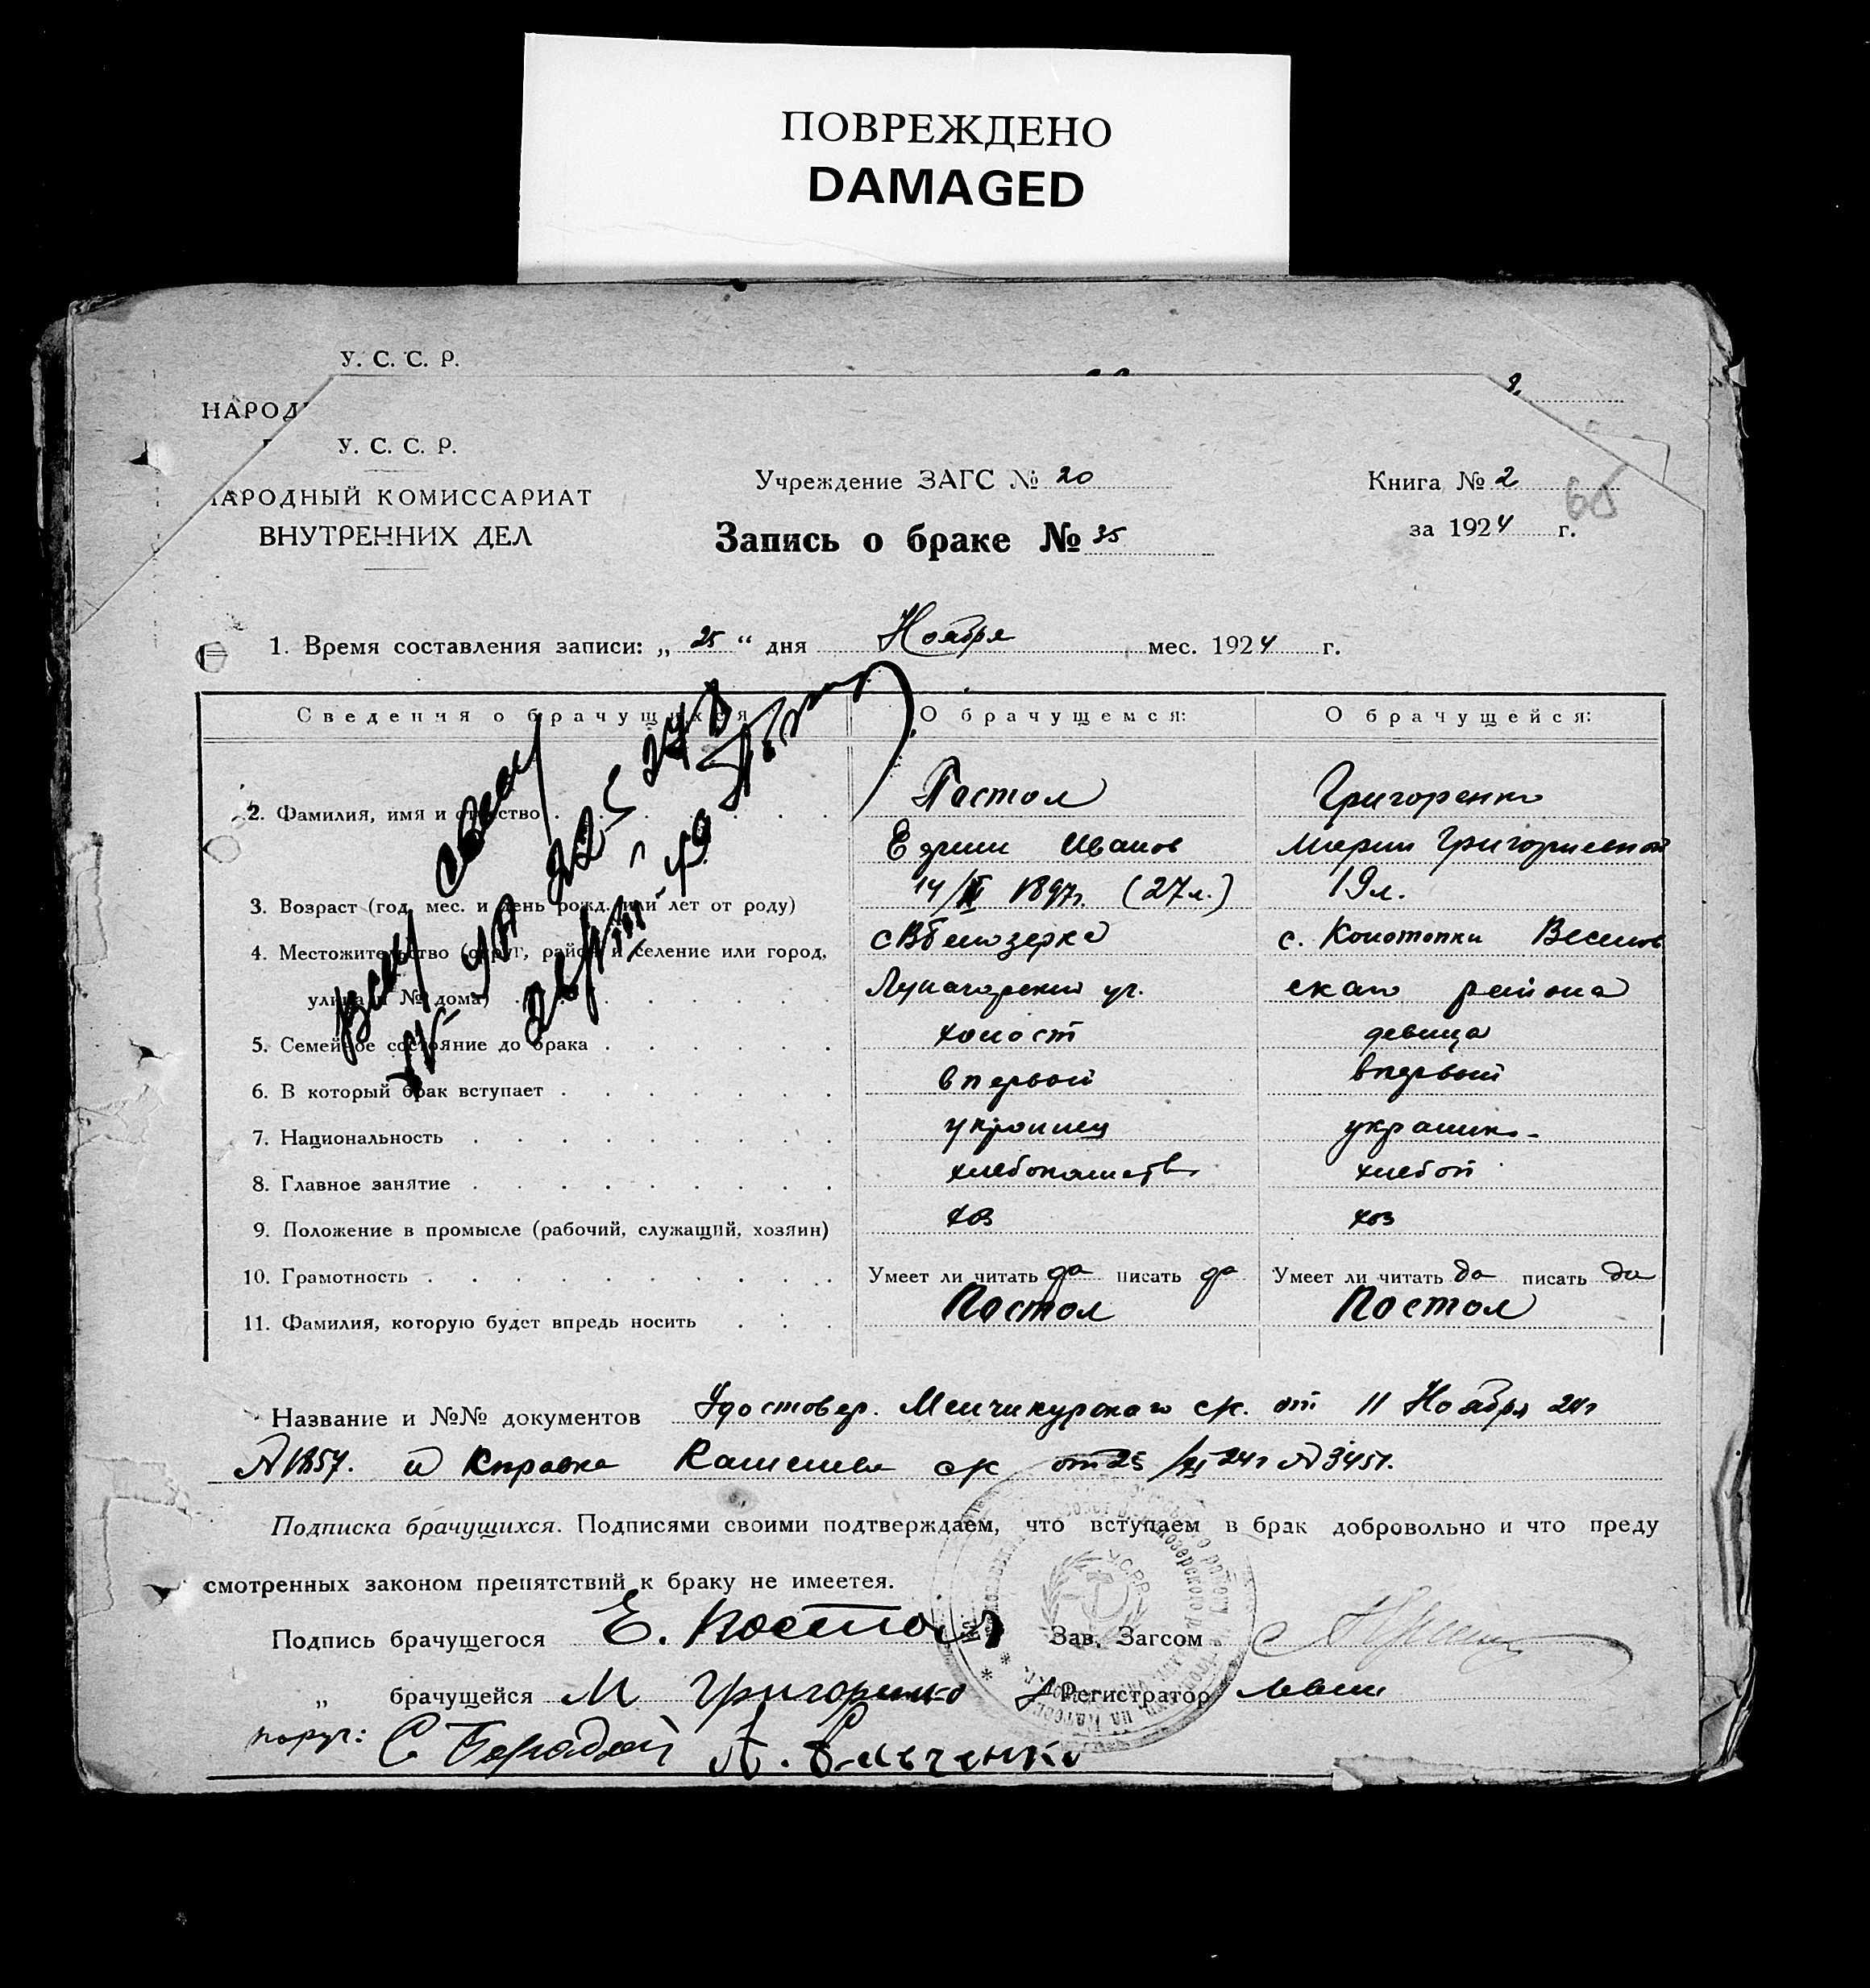 ПОВРЕЖДЕНО
DAMAGED
У. С. С. Р.
НАРОД
У. С. С. Р.
АРОДНЫЙ КОМИССАРИАТ
ВНУТРЕННИХ ДЕЛ
Учреждение ЗАГС № 20
Книга № 2
65
Запись о браке № 35
за 1924 г.
1. Время составления записи: „ 25 “ дня Ноября мес. 1924 г.
Сведения о брачущихся
О брачущемся:
О брачущейся:
2. Фамилия, имя и отчество
Постол
Григоренко
Ефрим Иванов
Мария Григориевной
3. Возраст (год, мес. и день рожд. или лет от роду)
1897г. (27 л.)
19 л.
4. Местожительство (округ, район и селение или город,
с. Конотопки Веселов
улица и № дома)
ул.
скаго района
5. Семейное состояние до брака
холост
девица
6. В который брак вступает
впервой
впервый
7. Национальность
украинец
украинк-
8. Главное занятие
хлебопашеств
хлебоп
9. Положение в промысле (рабочий, служащий, хозяин)
хоз
хоз
10. Грамотность
Умеет ли читать да писать да
Умеет ли читать да писать да
11. Фамилия, которую будет впредь носить
Постол
Постол
Название и №№ документов Удостовер. Менчикурскаго с/с. от 11 Ноября 24г
№ 1857. и справка с/с от 25/XI 24г № 3451.
Подписка брачущихся. Подписями своими подтверждаем, что вступаем в брак добровольно и что преду
смотренных законом препятствий к браку не имеетея.
Подпись брачущегося Е. Постол
Зав. Загсом
„ брачущейся М Григоренко
Регистратор
поруч: С
У.С.Р.Р.